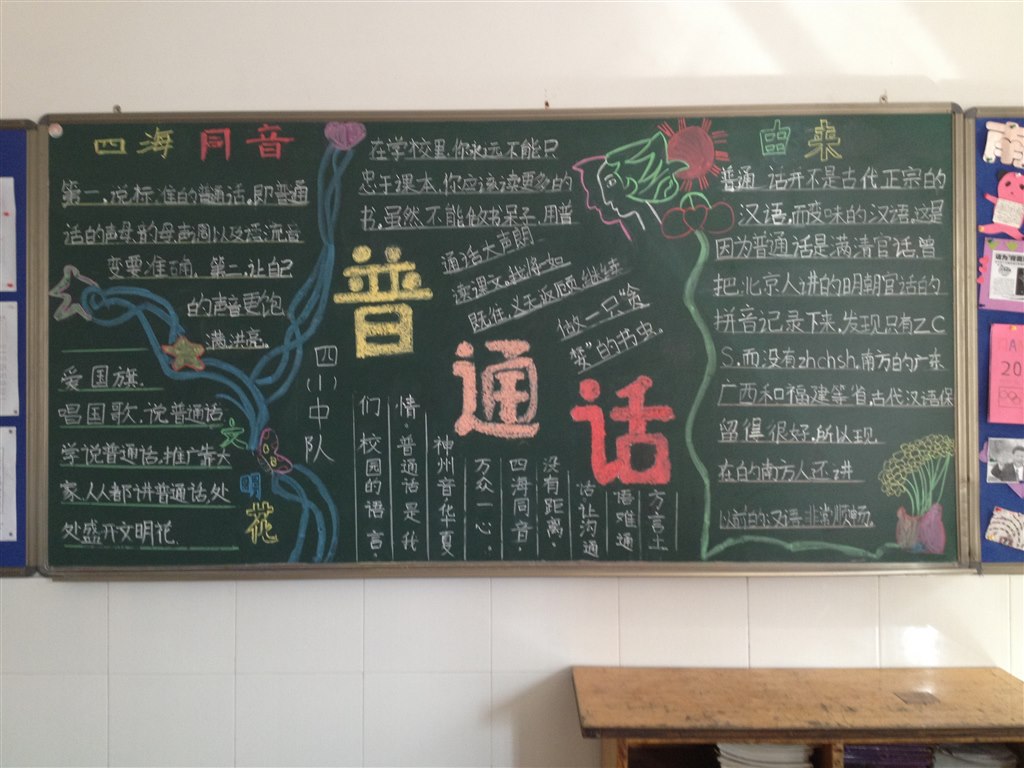 四海同音
第一,说标准的普通话,即普通
话的声母,韵母,声调以及语流音
变要准确,第二,让自己
的声音更饱
满洪亮.
爱国旗.
唱国歌.说普通话.
学说普通话.推广靠大
家.人人都讲普通话.处
处盛开文明花.
文
明
花
四(1)中队
在学校里,你永远不能只
忠于课本,你应该读更多的
书,虽然不能做书呆子,用普
通话大声朗
读课文,我将如
既往,义无返顾,继续
做一只"贪
婪"的书虫.
普
通
话
方言土
语难通
话让沟通
没有距离.
四海同音.
万众一心.
神州音华夏
情.普通话是我
们校园的语言.
由来
普通话并不是古代正宗的
汉语,而变味的汉语,这是
因为普通话是满清官话,曾
把北京人讲的明朝官话的
拼音记录下来,发现只有ZC
S.而没有zhchsh.南方的广东
广西和福建等省,古代汉语保
留得很好,所以现
在的南方人还讲
以前的汉语非常顺畅.
A
20